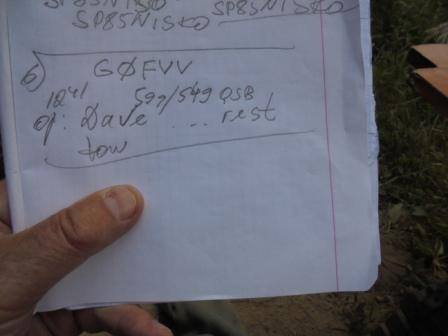 SP85NISKO
SP85NISKO SP85NISKO
6) GØFVV
1241 599/549 QSB
op: Dave ... rest
tow